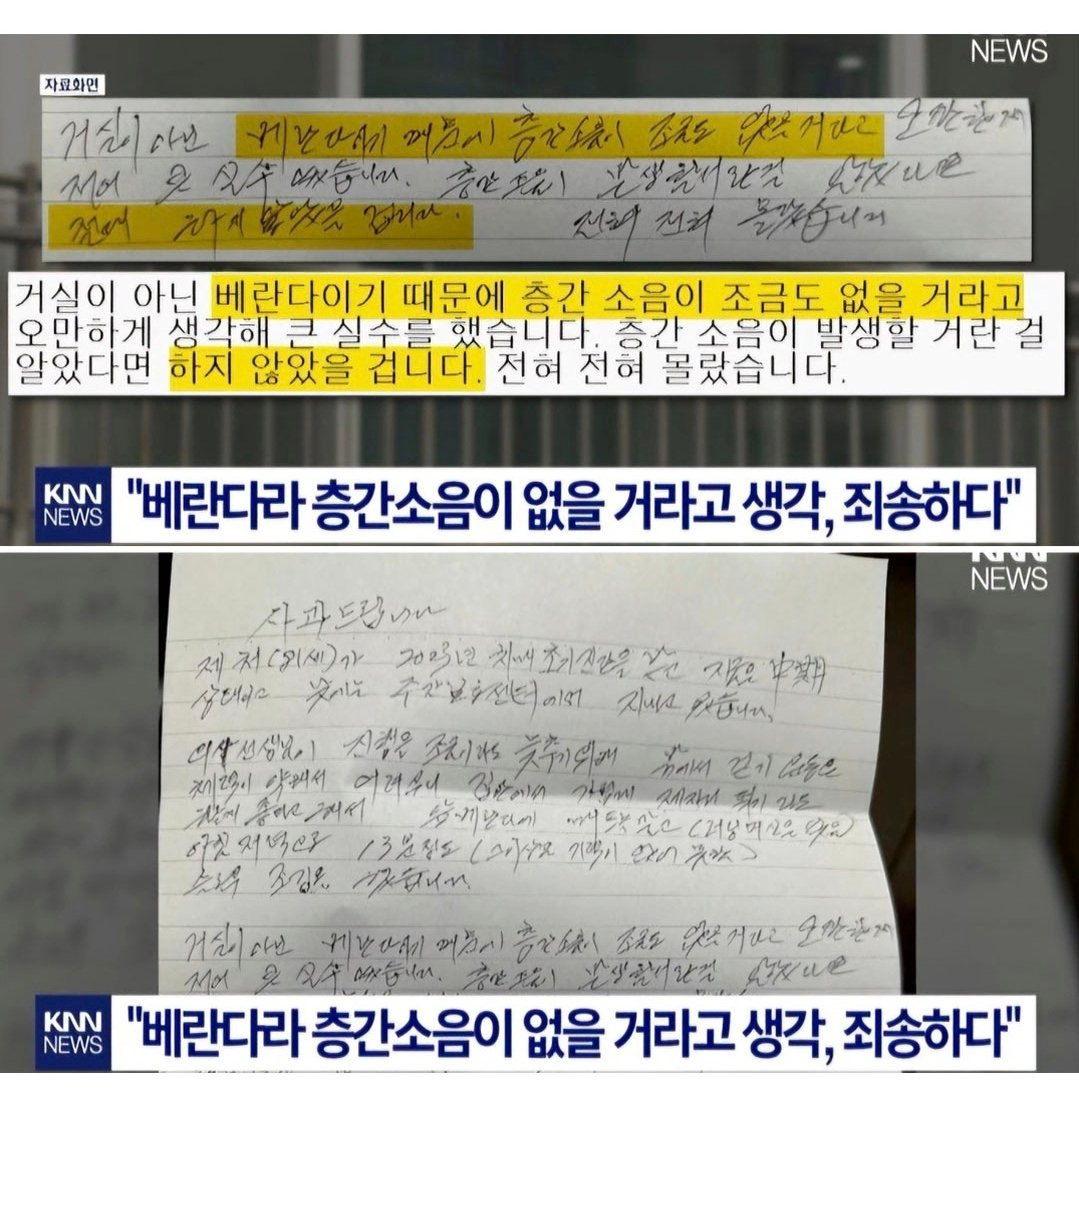 NEWS
자료화면
거실이 아닌 베란다이기 때문에 층간소음이 조금도 없을 거라고 오만하게
큰 실수 했습니다. 층간소음이 발생할거란걸 알았다면
절대 하지 않았을 겁니다. 전혀 전혀 몰랐습니다
거실이 아닌 베란다이기 때문에 층간 소음이 조금도 없을 거라고
오만하게 생각해 큰 실수를 했습니다. 층간 소음이 발생할 거란 걸
알았다면 하지 않았을 겁니다. 전혀 전혀 몰랐습니다.
KNN
NEWS
"베란다라 층간소음이 없을 거라고 생각, 죄송하다"
KNN
NEWS
사과드립니다
제 처가 2023년 치매 초기진단을 받고 지금은
상태이고 낮에는 주간보호센터에서 지내고 있습니다.
의사선생님이 진행을 조금이라도 늦추기위해 밖에서 걷기 운동은
체력이 약해서 어려우니 집안에서 가볍게 제자리 뛰기 라도
좋다고 그래서 베란다에 매트 깔고
아침 저녁으로 13분정도
했습니다.
거실이 아닌 베란다이기 때문에 층간소음이 조금도 없을 거라고 오만하게
큰 실수 했습니다. 층간소음이 발생할거란걸 알았다면
KNN
NEWS
"베란다라 층간소음이 없을 거라고 생각, 죄송하다"